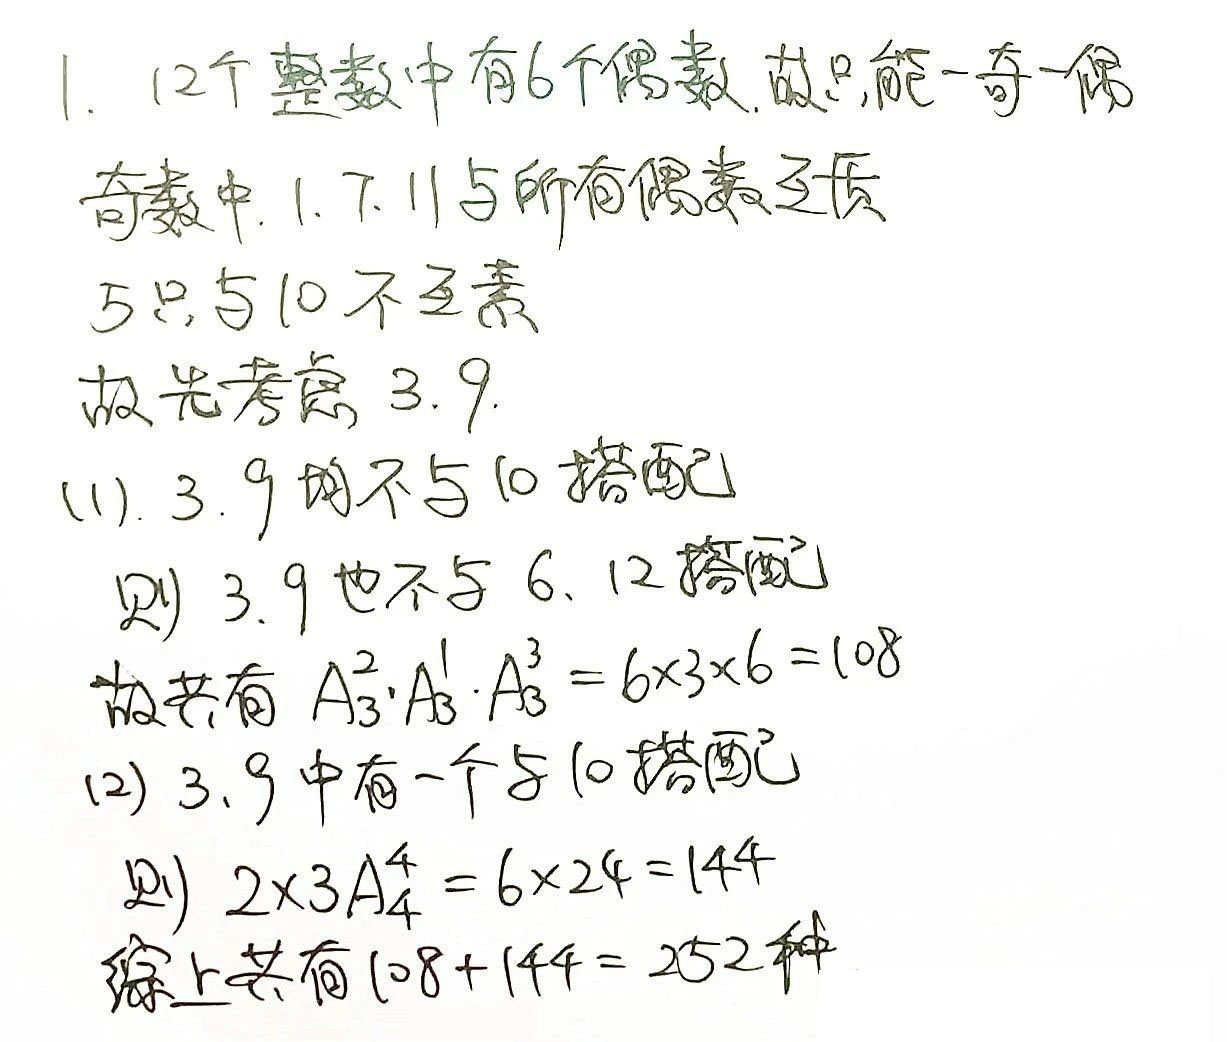 1. 12个整数中有6个偶数.故只能一奇一偶
奇数中.1.7.11与所有偶数互质
5只与10不互素
故先考虑 3.9.
(1). 3.9均不与10搭配
则 3.9也不与 6、12搭配
故共有 A₃²·A₃¹·A₃³=6×3×6=108
(2) 3、9中有一个与10搭配
则 2×3A₄⁴=6×24=144
综上共有108+144=252种